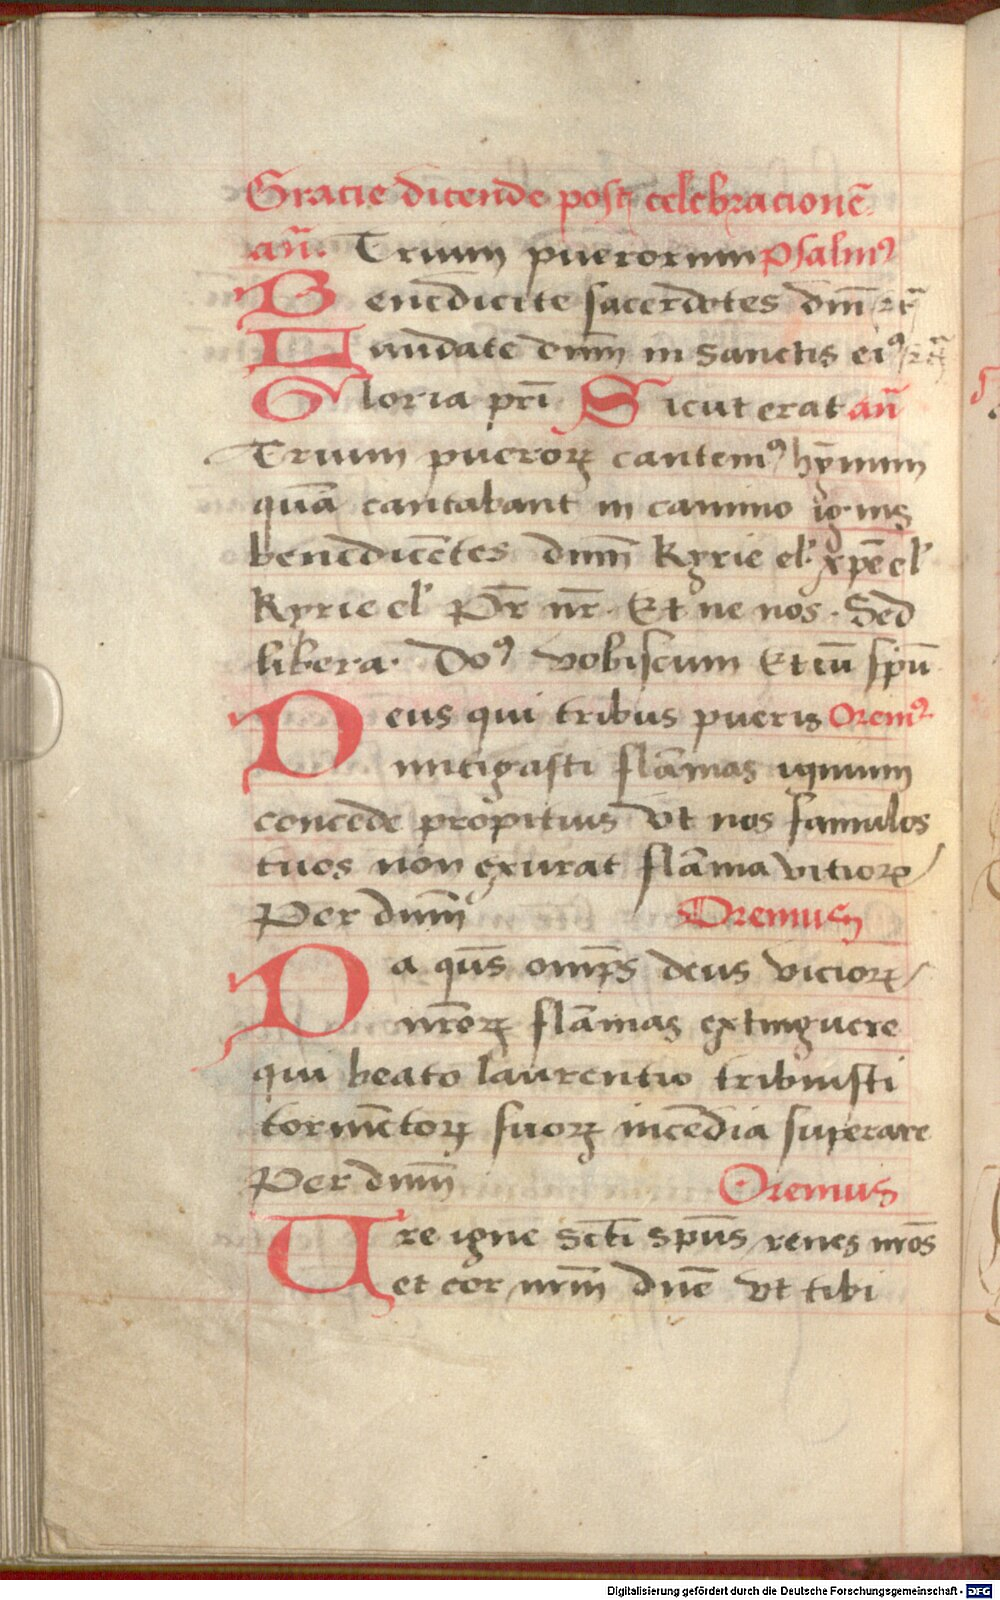 Gracie dicende post celebracionē
an̄. Trium puerorum Psalmꝰ
Benedicite sacerdotes dn̄m
Laudate dn̄m in sanctis eiꝰ
Gloria pr̄i Sicut erat an̄
Trium pueroꝝ cantemꝰ hȳmnum
quā cantabant in camino ignis
benedicētes dn̄m Kyrie el' xp̄e el'
Kyrie el' Pr̄ nr̄ Et ne nos. Sed
libera. Doꝰ vobiscum Et cū sp̄ū
Deus qui tribus pueris Oremꝰ
mitigasti flāmas ignium
concede propitius vt nos famulos
tuos non exurat flāma vitioꝝ
Per dn̄m Oremus
Da qūs omp̄s deus vicioꝝ
nr̄oꝝ flāmas extinguere
qui beato laurentio tribuisti
tormētoꝝ suoꝝ incēdia superare
Per dn̄m Oremus
Ure igne scti sp̄ūs renes nr̄os
et cor nr̄m dn̄e vt tibi
Digitalisierung gefördert durch die Deutsche Forschungsgemeinschaft - DFG